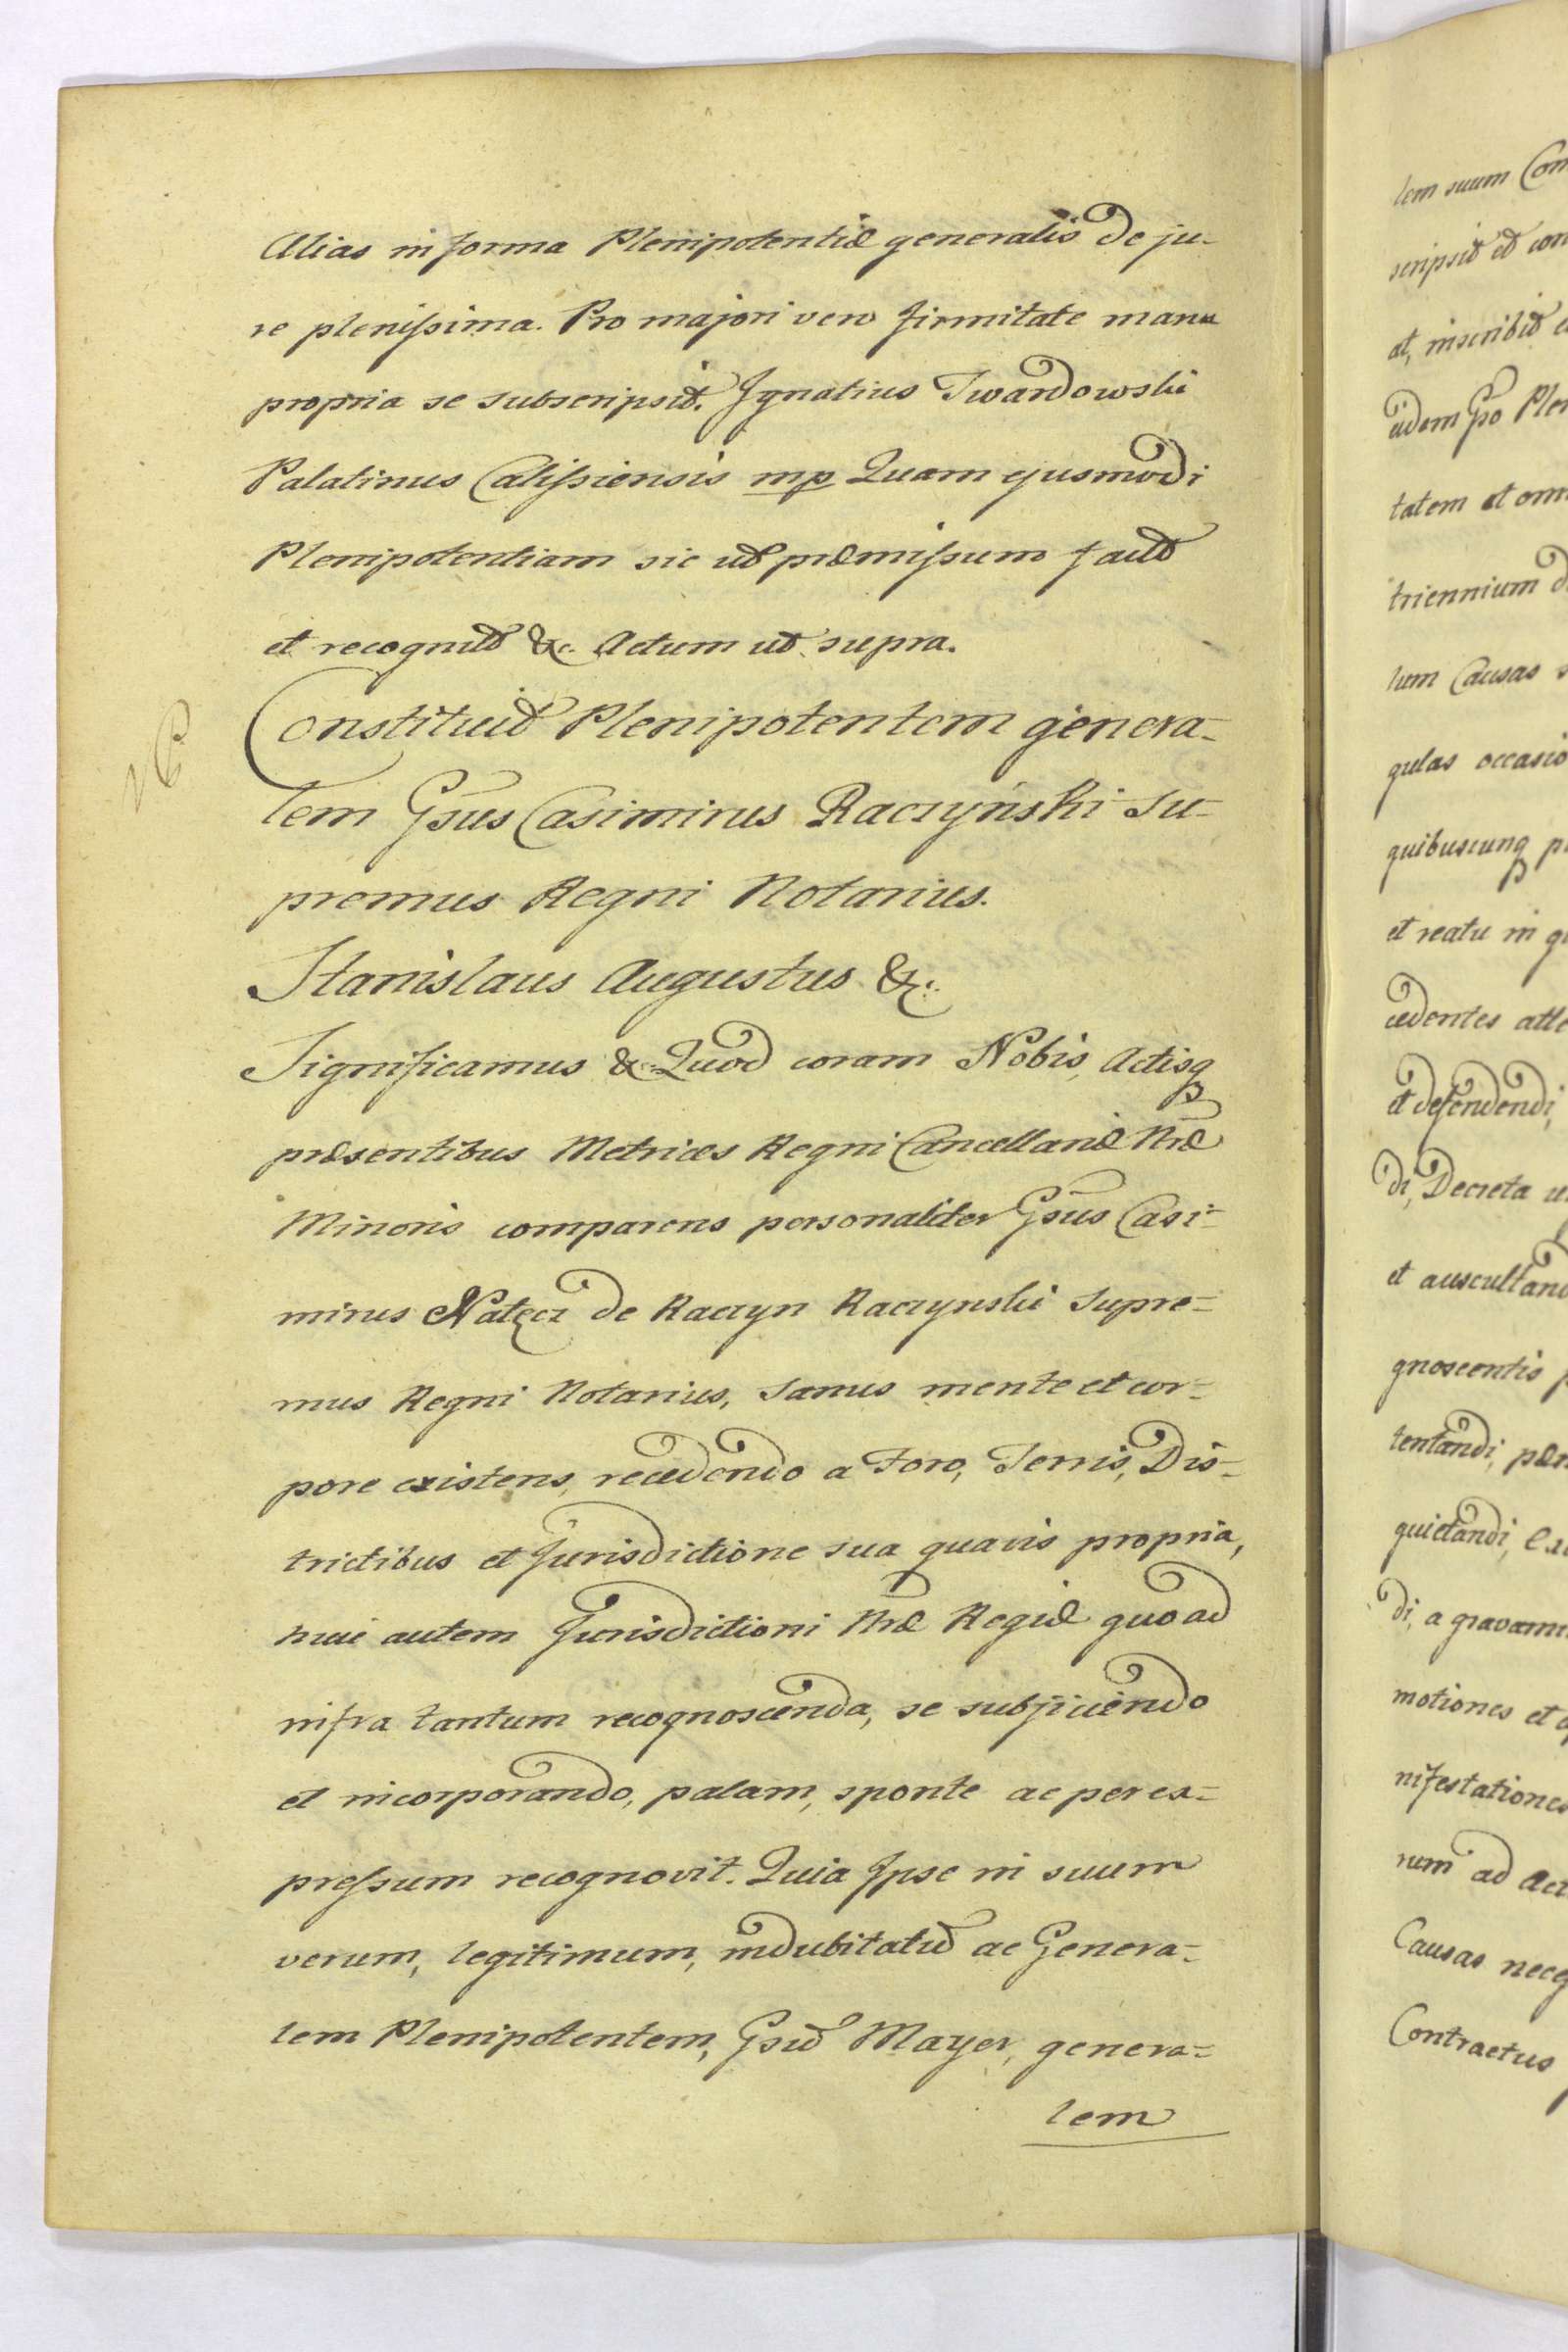 Alias in forma Plenipotentiæ generalis de ju-
re plenissima. Pro majori vero firmitate manu
propria se subscripsit. Ignatius Twardowski
Palatinus Calissiensis mp Quam ejusmodi
Plenipotentiam sic ut præmissum facit
et recognit &c. Actum ut supra.
Constituit Plenipotentem genera-
lem Gsus Casimirus Raczyński Su-
premus Regni Notarius.
Stanislaus Augustus &c.
Significamus &c. Quod coram Nobis, Actisq
præsentibus Metrices Regni Cancellariæ Nræ
Minoris comparens personaliter Gsus Casi-
mirus Nałęcz de Raczyn Raczynski Supre-
mus Regni Notarius, Sanus mente et cor-
pore existens, recedendo a Foro, Terris, Dis-
trictibus et Jurisdictione sua quavis propria,
huic autem Jurisdictioni Nræ Regiæ quo ad
infra tantum recognoscenda, se subjiciendo
et incorporando, palam, sponte ac per ex-
pressum recognovit. Quia Ipse in suum
verum, legitimum, indubitatu ac Genera-
lem Plenipotentem, Gsu Mayer, genera-
lem
lem suum Con
scripsit et con
at, inscribit e
eidem Gso Plen
tatem et omn
triennium d
lum Causas s
gulas occasio
quibuscunq p
et reatu in q
cedentes atte
et defendendi,
di, Decreta u
et auscultand
gnoscentis p
tentandi, pær
quietandi, Ex
di, a gravami
motiones et a
nifestationes
rum ad Act
Causas neces
Contractus